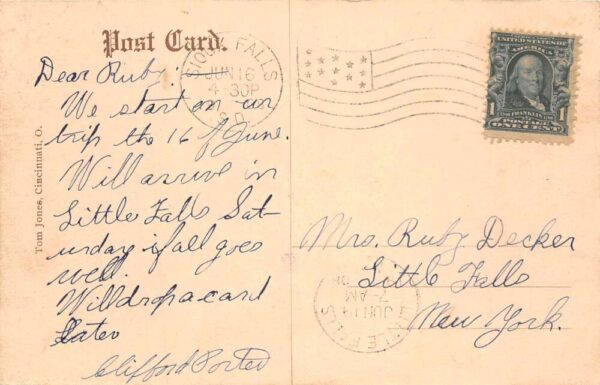 Post Card.
SIOUX FALLS
JUN 16
4-30P
S.D.
UNITED STATES OF AMERICA
FRANKLIN
1 1
POSTAGE
ONE CENT
Tom Jones, Cincinnati, O.
Dear Ruby:
We start on our
trip the 16 of June.
Will arrive in
Little Falls Sat-
urday if all goes
well.
Will drop a card
Later
Clifford Porter
Mrs. Ruby Decker
Little Falls
New York.
LITTLE FALLS
JUN 19
7-AM